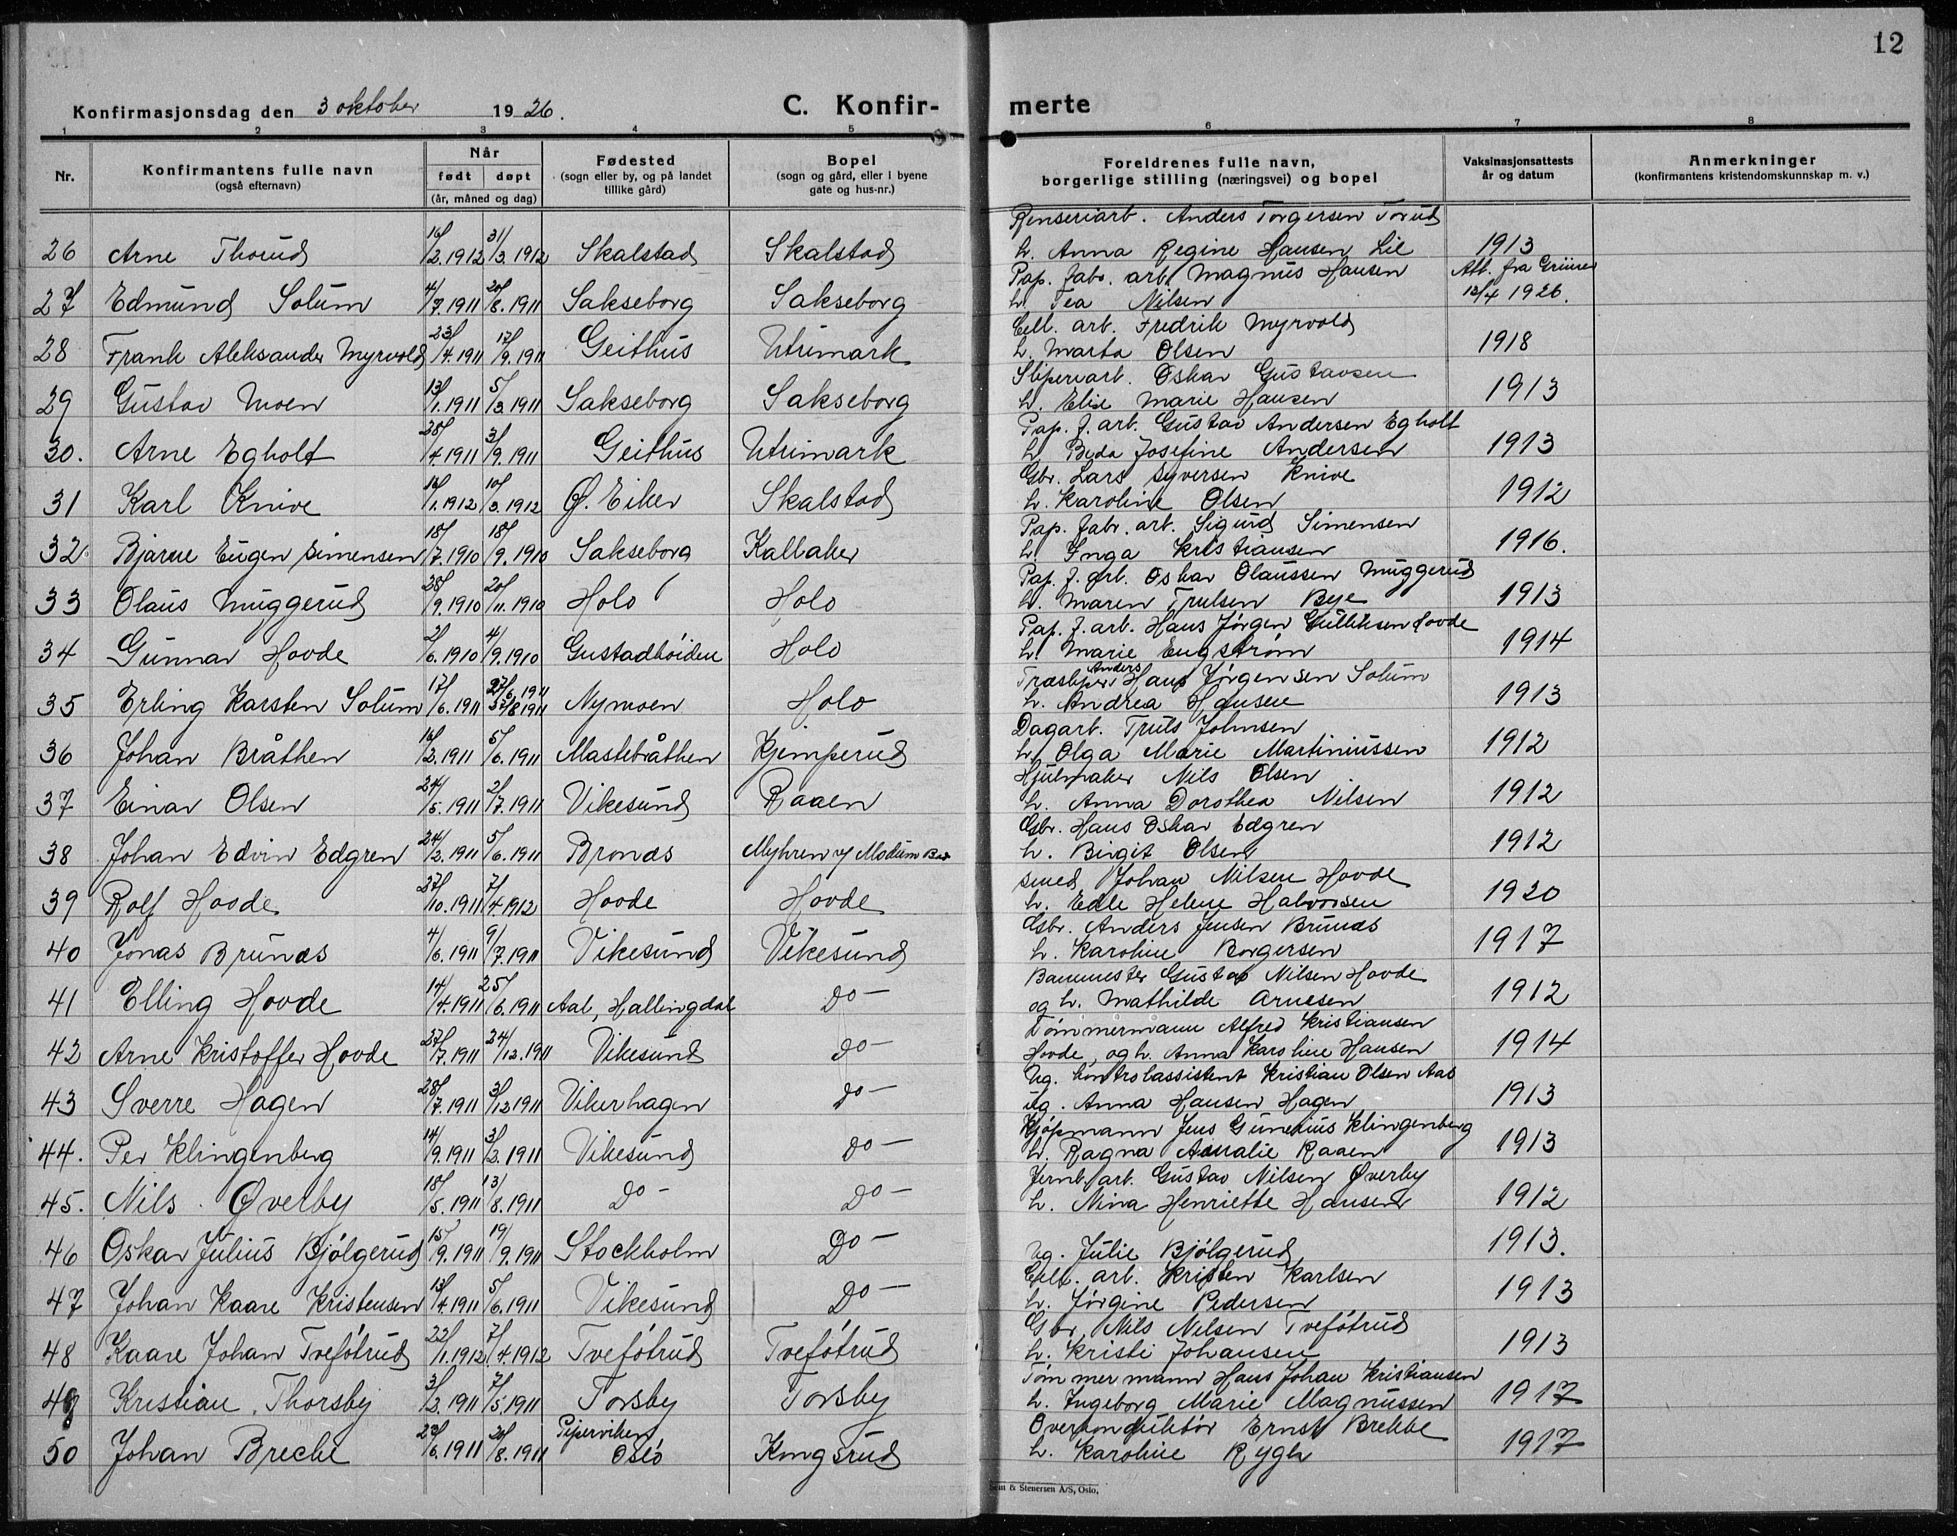 12
Konfirmasjonsdag den 3 oktober 1926. C. Konfirmerte
1 2 3 4 5 6 7 8
Nr. Konfirmantens fulle navn (også efternavn) Når født døpt (år, måned og dag) Fødested (sogn eller by, og på landet tillike gård) Bopel (sogn og gård, eller i byene gate og hus-nr.) Foreldrenes fulle navn, borgerlige stilling (næringsvei) og bopel Vaksinasjonsattests år og datum Anmerkninger (konfirmantens kristendomskunnskap m. v.)
Renseriarb. Anders Torgersen Torud
26 Arne Thorud 16/2.1912 31/3.1912 Skalstad Skalstad h. Anna Regine Hansen Lie 1913
Pap. fabr. arb. Magnus Hansen Att. fra
27 Edmund Solum 4/7.1911 20/8.1911 Sakseborg Sakseborg h. Tea Nilsen 12/4 1926.
Cell. arb. Fredrik Myrvold
28 Frank Aleksander Myrvold 23/4.1911 17/9.1911 Geithus Utrimark h. Marta Olsen 1918
Sliperiarb. Oskar Gustavsen
29 Gustav Moen 13/1.1911 5/3.1911 Sakseborg Sakseborg h. Elise Marie Hansen 1913
Pap. f. arb. Gustav Andersen Egholt
30. Arne Egholt 28/4.1911 3/9.1911 Geithus Utrimark h. Beda Josefine Andersen 1913
Gbr. Lars Syversen Knive
31 Karl Knive 14/1.1912 10/3.1912 Ø. Eiker Skalstad h. Karoline Olsen 1912
Pap. fabr. arb. Sigurd Simensen
32. Bjarne Eugen Simensen 18/7.1910 18/9.1910 Sakseborg Kallaker h. Inga Kristiansen 1916.
Pap. f. arb. Oskar Olaussen Muggerud
33 Olaus Muggerud 28/9.1910 20/11.1910 Holo Holo h. Maren Trulsen Bye 1913
Pap. f. arb. Hans Jørgen Gulliksen Hovde
34 Gunnar Hovde 2/6.1910 4/9.1910 Gustadhöiden Holo h. Marie Engström 1914
Træsliper Anders Hans Jørgensen Solum
35 Erling Karsten Solum 17/6.1911 27/8 1911 Nymoen Holo h. Andrea Hansen 1913
Dagarb. Truls Johnsen
36 Johan Bråthen 16/2.1911 5/6.1911 Mastebråthen Kjemperud h. Olga Marie Martiniussen 1912
Hjulmaker Nils Olsen
37 Einar Olsen 24/5.1911 2/7.1911 Vikesund Raaen h. Anna Dorothea Nilsen 1912
Gbr. Hans Oskar Edgren
38 Johan Edvin Edgren 24/2.1911 5/6.1911 Brones Myhren v/ Modum Bad h. Birgit Olsen 1912
Smed Johan Nilsen Hovde
39 Rolf Hovde 27/10.1911 7/4.1912 Hovde Hovde h. Edle Helene Halvorsen 1920
Gbr. Anders Jensen Brunes
40 Jonas Brunes 4/6.1911 9/7.1911 Vikesund Vikesund h. Karoline Borgersen 1917
Banemester Gustav Nilsen Hovde
41 Elling Hovde 14/4.1911 25/6.1911 Aal, Hallingdal Do - og h. Mathilde Arnesen 1912
Tømmermann Alfred Kristiansen
42 Arne Kristoffer Hovde 27/7.1911 24/12.1911 Vikesund Do - Hovde, og h. Anna Karoline Hansen 1914
Ug. kontrolassistent Kristian Olsen Aas
43 Sverre Hagen 28/7.1911 3/12 1911 Vikerhagen Do - Ug. Anna Hansen Hagen 1913
Kjøpmann Jens Gunerius Klingenberg
44. Per Klingenberg 14/9.1911 3/2.1911 Vikesund Do - h. Ragna Amalie Raaen 1913
Jernb. arb. Gustav Nilsen Øverby
45. Nils Øverby 18/5.1911 13/8.1911 Do - Do - h. Nina Henriette Hansen 1912
46 Oskar Julius Bjölgerud 15/9.1911 19/9.1911 Stockholm Do - Ug. Julie Bjölgerud 1913.
Cell. arb. Kristen Karlsen
47 Johan Kaare Kristensen 13/4.1911 5/6.1911 Vikesund Do - h. Jørgine Pedersen 1913
Gbr. Nils Nilsen Tvefötrud
48 Kaare Johan Tvefötrud 22/1.1912 7/4.1912 Tvefötrud Tvefötrud h. Kristi Johansen 1913
Tømmermann Hans Johan Kristiansen
49 Kristian Thorsby 3/2.1911 7/5.1911 Torsby Torsby h. Ingeborg Marie Magnussen 1917
Pipervikens Overkonduktør Ernst Brekke
50 Johan Breche 23/6.1911 20/8.1911 Oslo Kongsrud h. Karoline Rygh 1917
Sem & Stenersen A/S, Oslo.